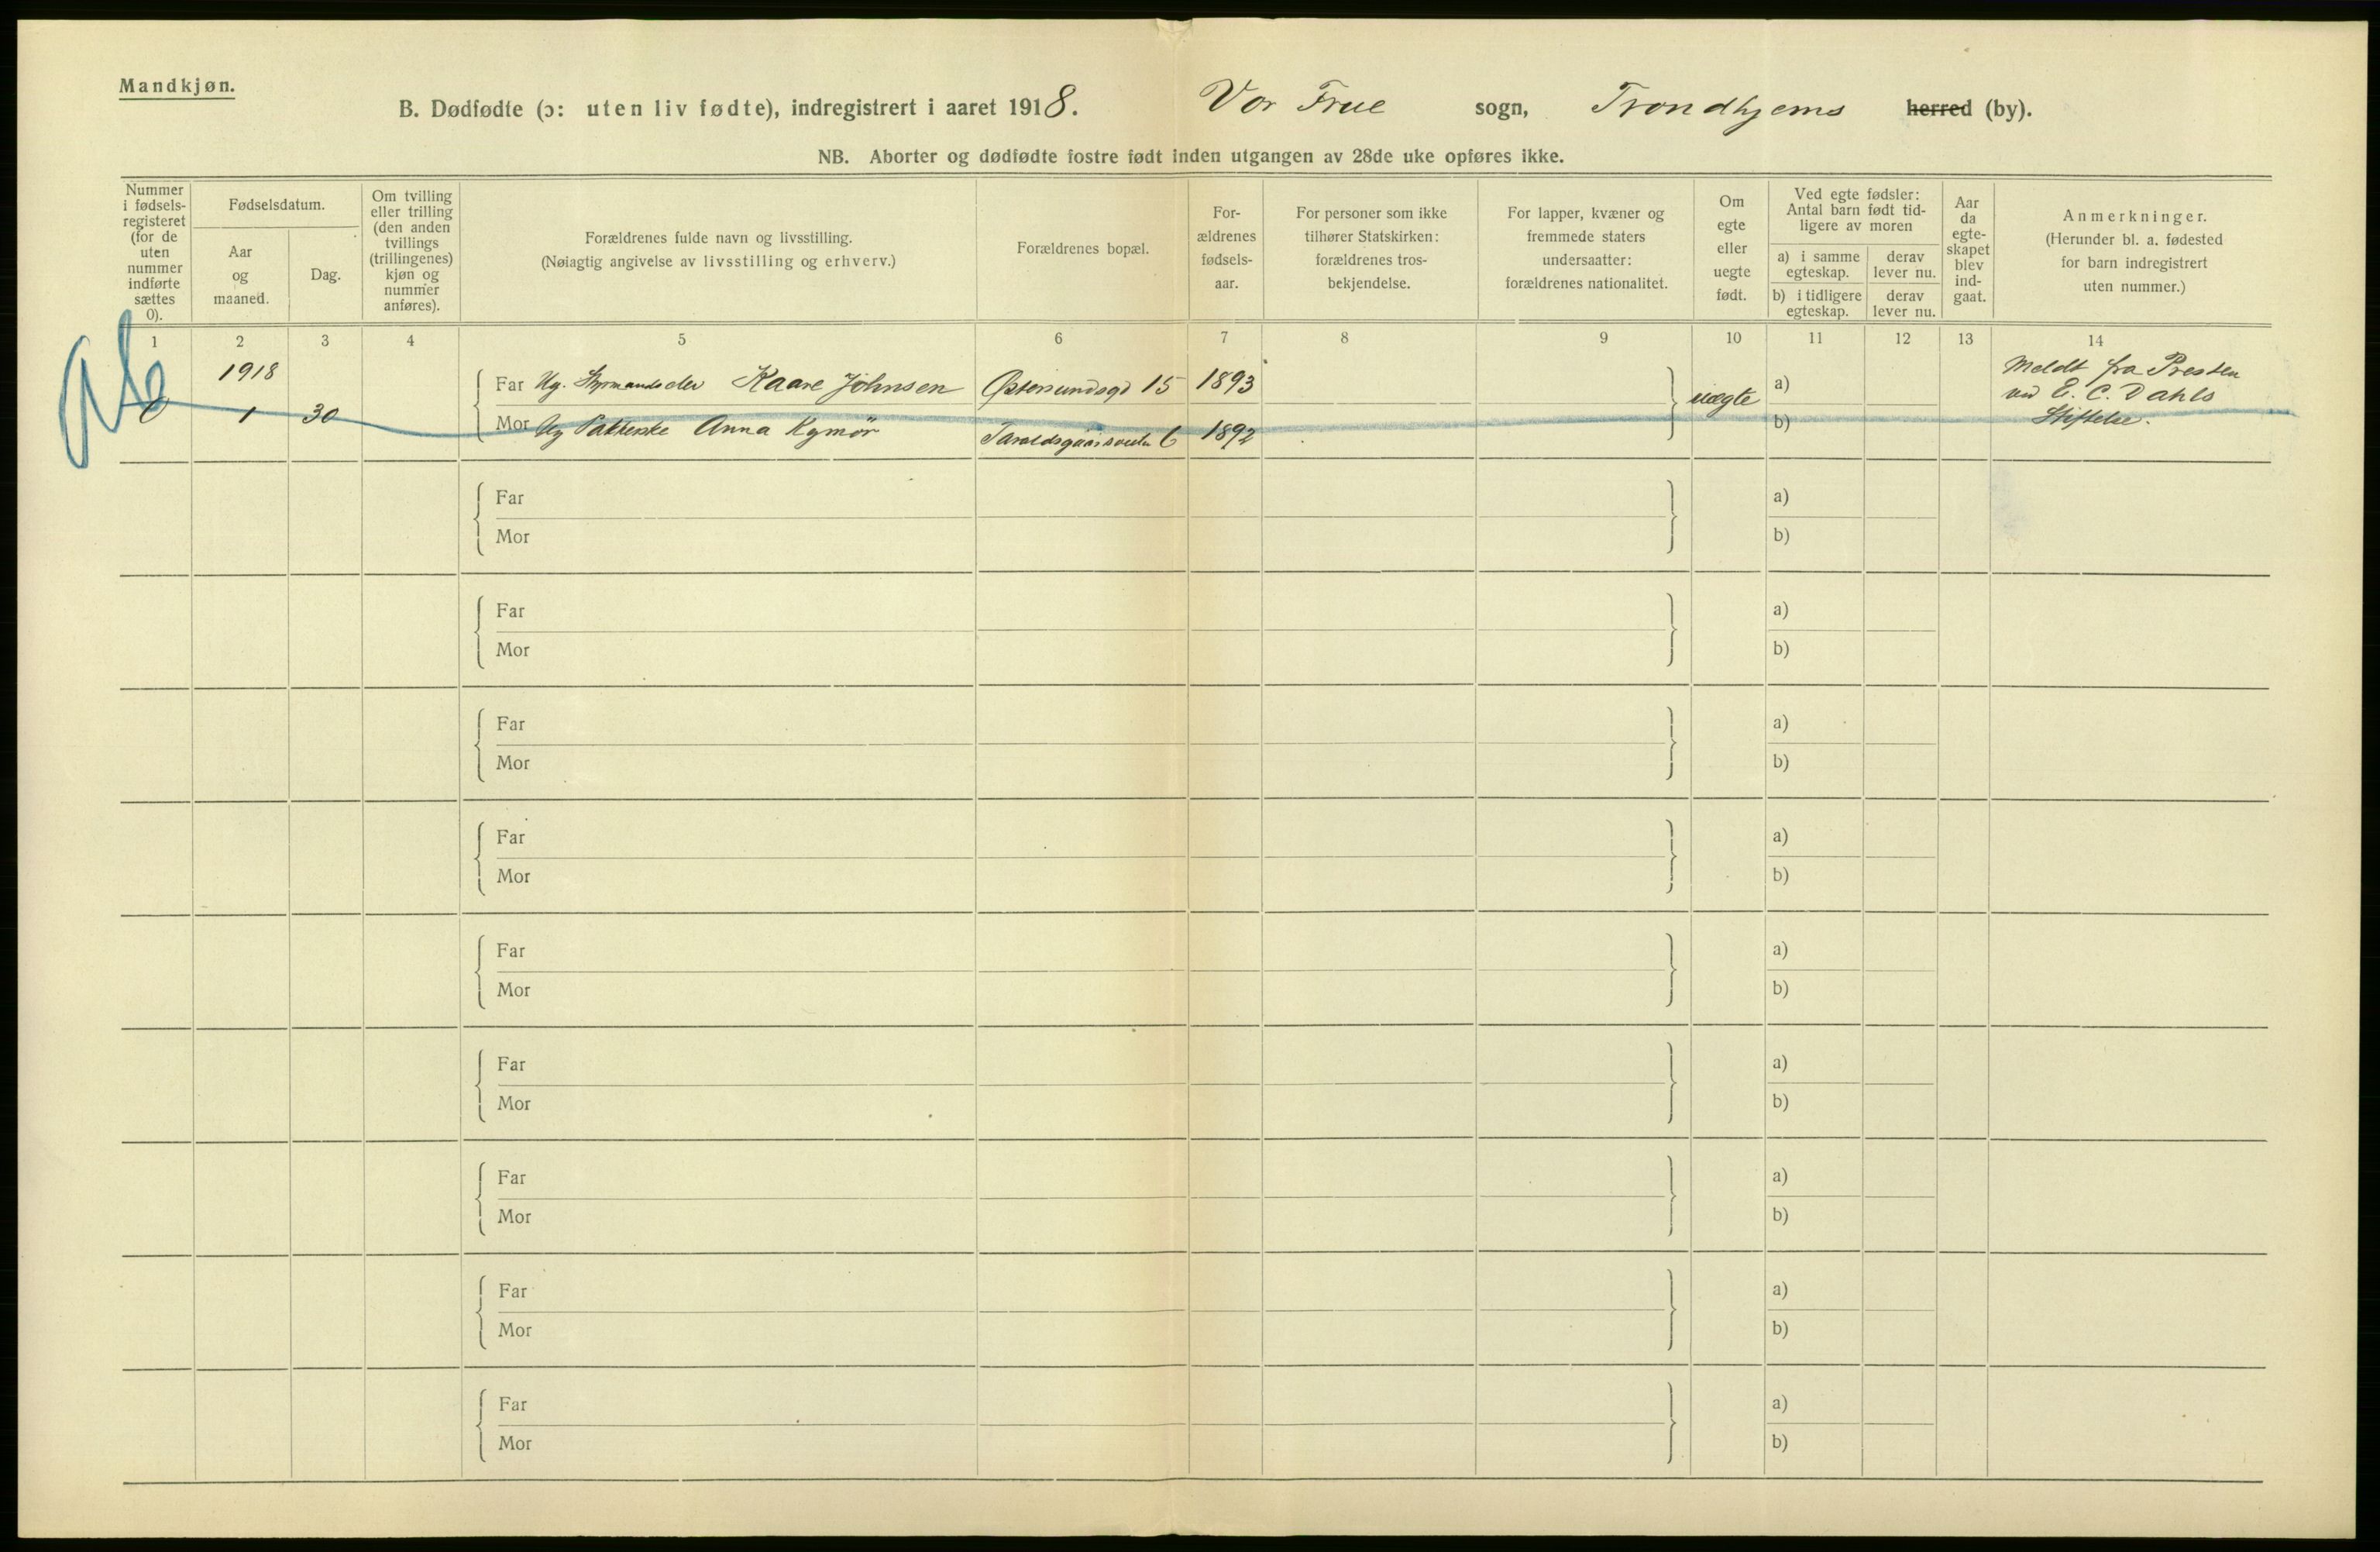 Mandkjøn.
B. Dødfødte (ɔ: uten liv fødte), indregistrert i aaret 1918. Vor Frue sogn, Trondhjems herred (by).
NB. Aborter og dødfødte fostre født inden utgangen av 28de uke opføres ikke.
Nummer
i fødsels-
registeret
(for de
uten
nummer
indførte
sættes
0).
Fødselsdatum.
Aar
og
maaned.
Dag.
Om tvilling
eller trilling
(den anden
tvillings
(trillingenes)
kjøn og
nummer
anføres).
Forældrenes fulde navn og livsstilling.
(Nøiagtig angivelse av livsstilling og erhverv.)
Forældrenes bopæl.
For-
ældrenes
fødsels-
aar.
For personer som ikke
tilhører Statskirken:
forældrenes tros-
bekjendelse.
For lapper, kvæner og
fremmede staters
undersaatter:
forældrenes nationalitet.
Om
egte
eller
uegte
født.
Ved egte fødsler:
Antal barn født tid-
ligere av moren
a) i samme
egteskap.
derav
lever nu.
b) i tidligere
egteskap.
derav
lever nu.
Aar
da
egte-
skapet
blev
ind-
gaat.
Anmerkninger.
(Herunder bl. a. fødested
for barn indregistrert
uten nummer.)
1 2 3 4 5 6 7 8 9 10 11 12 13 14
1918
0 1 30
Far Ug. Kaare Johnsen Østersundsgd 15 1893
Mor Ug Anna Kymör 6 1892
uegte
a)
b)
Meldt fra Presten
ved E. C. Dahls
Stiftelse.
Far a)
Mor b)
Far a)
Mor b)
Far a)
Mor b)
Far a)
Mor b)
Far a)
Mor b)
Far a)
Mor b)
Far a)
Mor b)
Far a)
Mor b)
Far a)
Mor b)